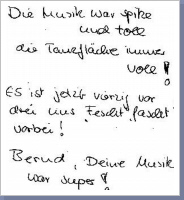 Die Musik war spitze
und toll
die Tanzfläche immer
voll!
Es ist jetzt vierzig vor
drei uns Fescht fascht
vorbei!
Bernd, Deine Musik
war super!